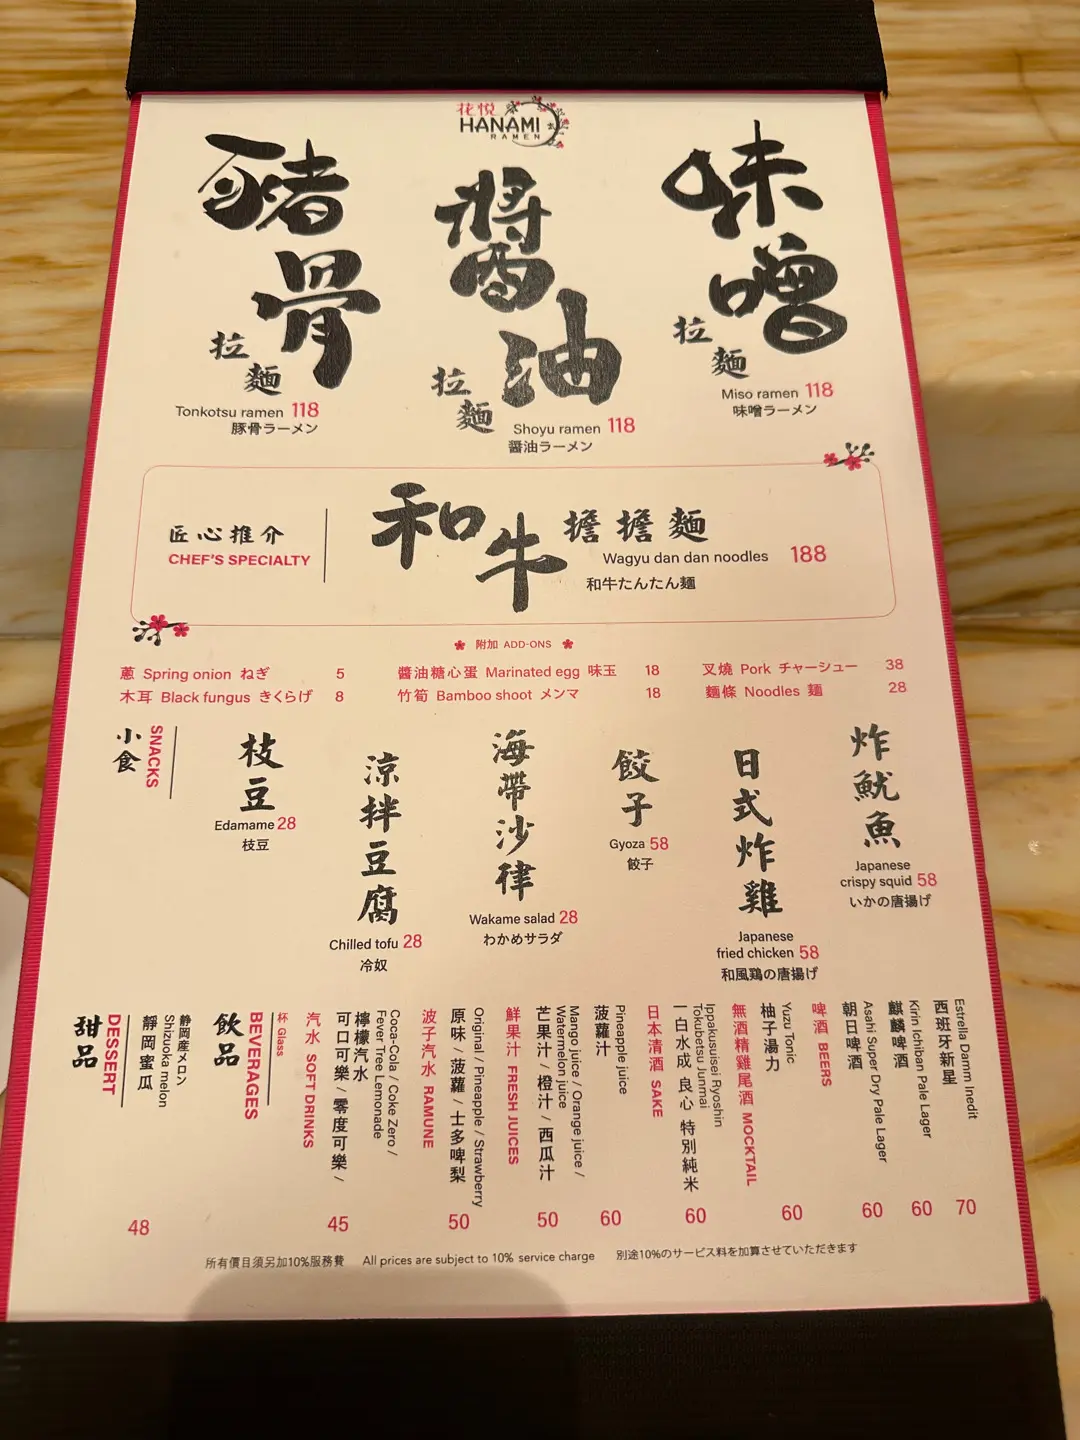 花悦
HANAMI
RAMEN
豬骨
拉麵
Tonkotsu ramen 118
豚骨ラーメン
醬油
拉麵
Shoyu ramen 118
醤油ラーメン
味噌
拉麵
Miso ramen 118
味噌ラーメン
匠心推介
CHEF'S SPECIALTY
和牛擔擔麵
Wagyu dan dan noodles 188
和牛たんたん麺
附加 ADD-ONS
蔥 Spring onion ねぎ 5
醬油糖心蛋 Marinated egg 味玉 18
叉燒 Pork チャーシュー 38
木耳 Black fungus きくらげ 8
竹筍 Bamboo shoot メンマ 18
麵條 Noodles 麺 28
小食
SNACKS
枝豆
Edamame 28
枝豆
涼拌豆腐
Chilled tofu 28
冷奴
海帶沙律
Wakame salad 28
わかめサラダ
餃子
Gyoza 58
餃子
日式炸雞
Japanese
fried chicken 58
和風鶏の唐揚げ
炸魷魚
Japanese
crispy squid 58
いかの唐揚げ
甜品
DESSERT
靜岡蜜瓜
Shizuoka melon
静岡産メロン
48
飲品
BEVERAGES
杯 Glass
汽水 SOFT DRINKS
可口可樂 / 零度可樂 /
檸檬汽水
Coca-Cola / Coke Zero /
Fever Tree Lemonade
45
波子汽水 RAMUNE
原味 / 菠蘿 / 士多啤梨
Original / Pineapple / Strawberry
50
鮮果汁 FRESH JUICES
芒果汁 / 橙汁 / 西瓜汁
Mango juice / Orange juice /
Watermelon juice
50
菠蘿汁
Pineapple juice
60
日本清酒 SAKE
一白水成 良心 特別純米
Ippakusuisei Ryoshin
Tokubetsu Junmai
60
無酒精雞尾酒 MOCKTAIL
柚子湯力
Yuzu Tonic
60
啤酒 BEERS
朝日啤酒
Asahi Super Dry Pale Lager
60
麒麟啤酒
Kirin Ichiban Pale Lager
60
西班牙新星
Estrella Damm Inedit
70
所有價目須另加10%服務費 All prices are subject to 10% service charge 別途10%のサービス料を加算させていただきます